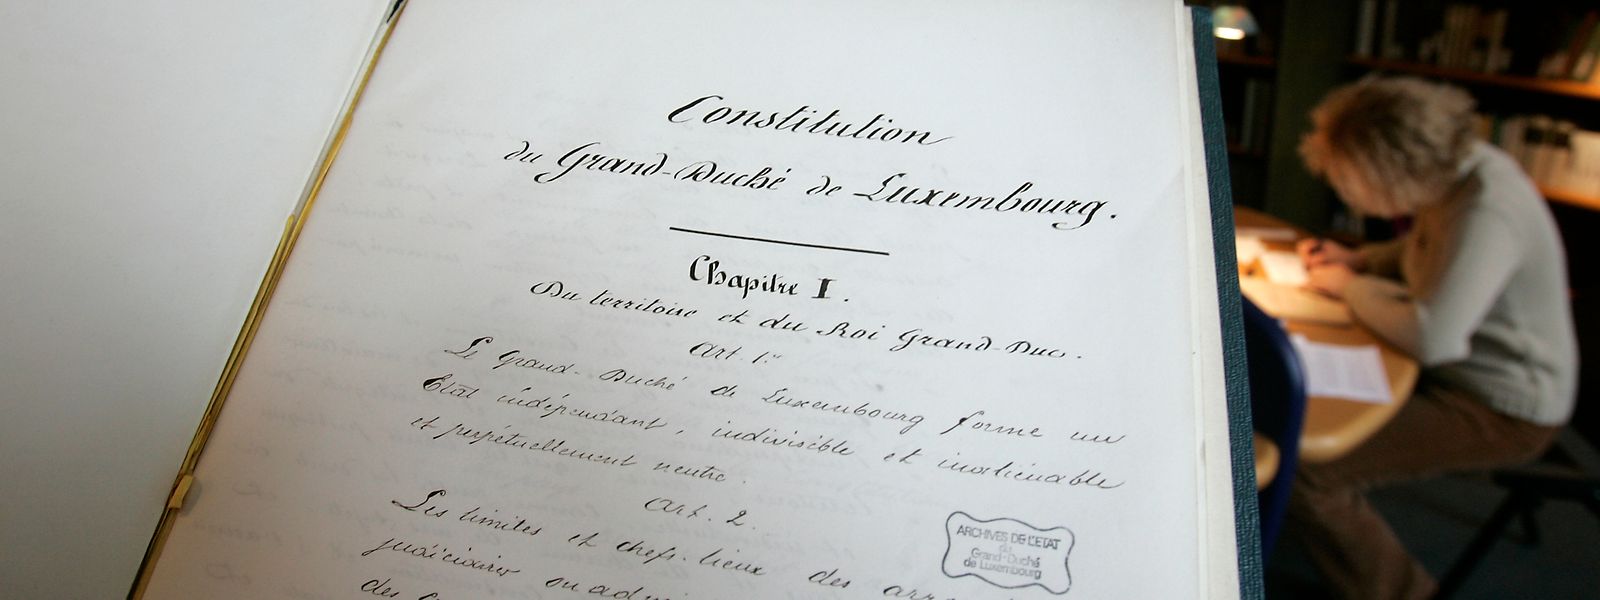 Constitution
du Grand-Duché de Luxembourg.
Chapitre I.
Du territoire et du Roi Grand-Duc.
Art. 1.er
Le Grand-Duché de Luxembourg forme un
Etat indépendant, indivisible et inaliénable
et perpétuellement neutre.
Art. 2.
Les limites et chefs-lieux des
judiciaires ou
des
ARCHIVES DE L'ETAT
du
Grand-Duché
de Luxembourg